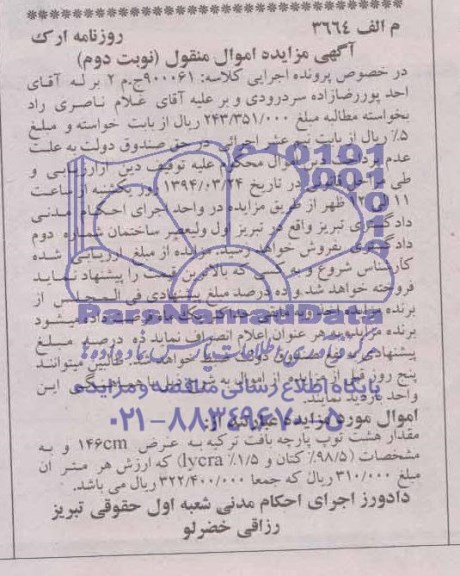 م الف ۳۶۶۴
روزنامه ارک
آگهی مزایده اموال منقول (نوبت دوم)
در خصوص پرونده اجرایی کلاسه: ۹۰۰۰۶۱ج.م ۲ بر له آقای
احد پوررضازاده سردرودی و بر علیه آقای غلام ناصری راد
بخواسته مطالبه مبلغ ۲۴۳/۳۵۱/۰۰۰ ریال از بابت خواسته و مبلغ
۵٪ ریال از بابت نیم عشر اجرائی در حق صندوق دولت به علت
عدم پرداخت دین اموال محکوم علیه توقیف دین ارازیابی و
طی مراحل قانونی در تاریخ ۱۳۹۴/۰۳/۲۴ روز یکشنبه از ساعت
۱۱ الی ۱۲ ظهر از طریق مزایده در واحد اجرای احکام مدنی
دادگستری تبریز واقع در تبریز اول ولیعصر ساختمان شماره دوم
دادگستری بفروش خواهد رسید. مزایده از مبلغ ارزیابی شده
کارشناس شروع و به کسی که بالاترین قیمت را پیشنهاد نماید
فروخته خواهد شد و ده درصد مبلغ پیشنهادی فی المجلس از
برنده مزایده اخذ و به مابقی حداکثر یک ماه فرصت داده میشود
برنده مزایده به هر عنوان اعلام انصراف نماید ده درصد مبلغ
پیشنهادی به نفع صندوق دولت ضبط خواهد شد. طالبین میتوانند
پنج روز قبل از مزایده از اموال به شرح ذیل با هماهنگی این
واحد بازدید نمایند.
اموال مورد مزایده عبارتند از:
مقدار هشت توپ پارچه بافت ترکیه به عرض ۱۴۶cm و به
مشخصات (۹۸/۵٪ کتان و ۱/۵٪ lycra) که ارزش هر متر آن
مبلغ ۳۱۰/۰۰۰ ریال که جمعا ۳۲۲/۴۰۰/۰۰۰ ریال می باشد.
دادورز اجرای احکام مدنی شعبه اول حقوقی تبریز
رزاقی خضرلو
ParsNamadData
پایگاه اطلاع رسانی مناقصه و مزایده
۰۲۱-۸۸۳۴۹۶۷۰-۵